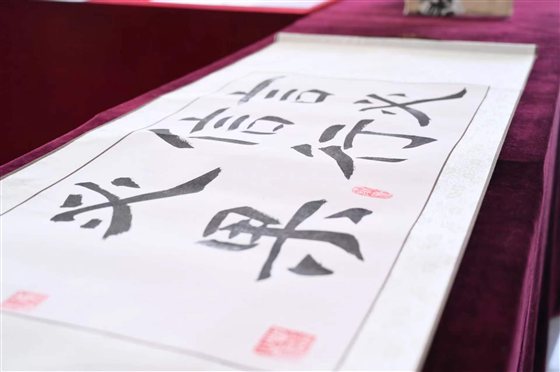 言必
信行
必果